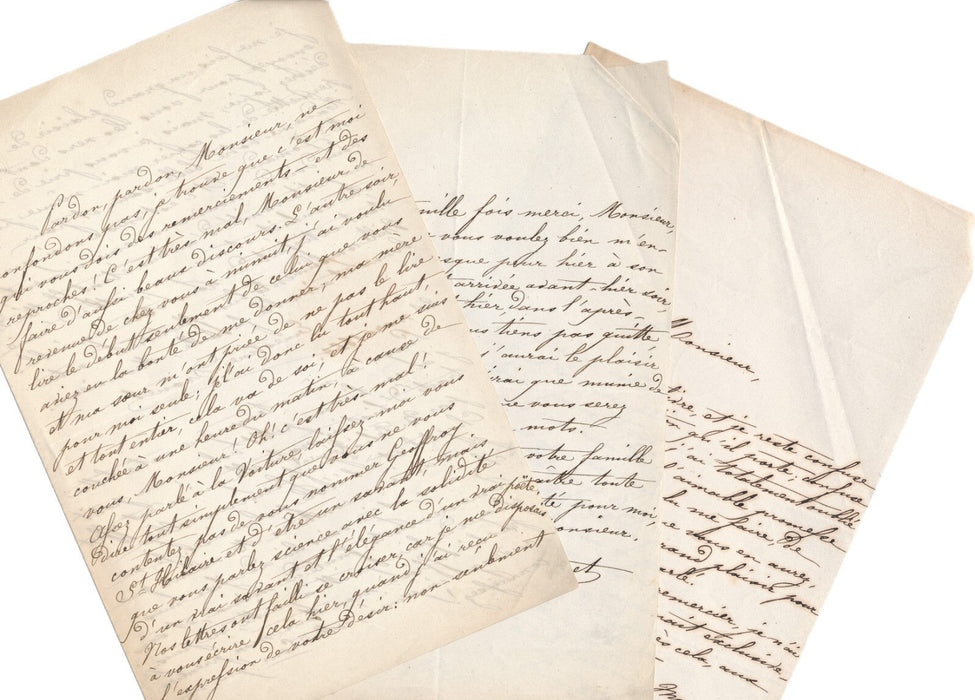 Pardon, pardon, Monsieur, ne
confondons pas, je trouve que c'est moi
qui vous dois des remerciements - et des
reproches! C'est très mal, Monsieur de
faire d'aussi beaux discours. L'autre soir,
revenue de chez vous à minuit, j'ai voulu
lire le début seulement de celui que vous
aviez eu la bonté de me donner, ma mère
et ma sœur m'ont priée de ne pas le lire
pour moi seule; je l'ai donc lu tout haut,
et tout entier, cela va de soi, et je me suis
couchée à une heure du matin, à cause de
vous, Monsieur! Oh! c'est très mal!
Assez parlé à la Voiture, laissez-moi vous
dire tout simplement que vous ne vous
contentez pas de vous nommer Geoffroy
St-Hilaire et d'être un savant, mais
que vous parlez science avec la solidité
d'un vrai savant et l'élégance d'un vrai poète.
Nos lettres ont failli se croiser, car je me disposais
à vous écrire cela hier, quand j'ai reçu
l'expression de votre désir: non seulement
mille fois merci, Monsieur,
vous voulez bien m'en-
que pour hier à son
arrivée avant hier soir,
hier dans l'après-
tiens pas quitte
j'aurai le plaisir
que munie de
que vous serez
mots.
votre famille
toute
pour moi,
Monsieur,
et
Monsieur,
et je reste confuse
qu'il porte; de quoi
j'ai totalement oublié
l'aimable promesse
me faire, de
vous en aurez,
grand plaisir pour
remercier, je n'ai
cela, aux
M